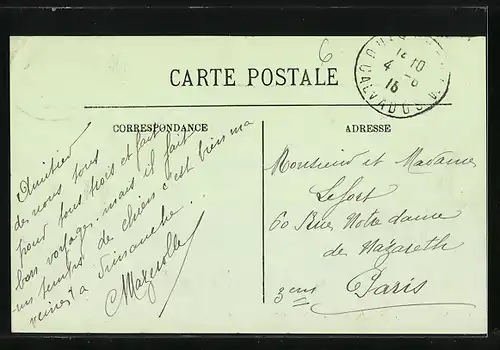 6
12 10
4 - 6
16
CALVADOS
CARTE POSTALE
CORRESPONDANCE
ADRESSE
Amitier
de nous tous
pour tous trois et fait
bon voyage. mais il fait
un temps de chien c'est bien ma
veine a Dimanche.
Mazerolle
Monsieur et Madame
Lefort
60 Rue Notre dame
de Nazareth
3em Paris